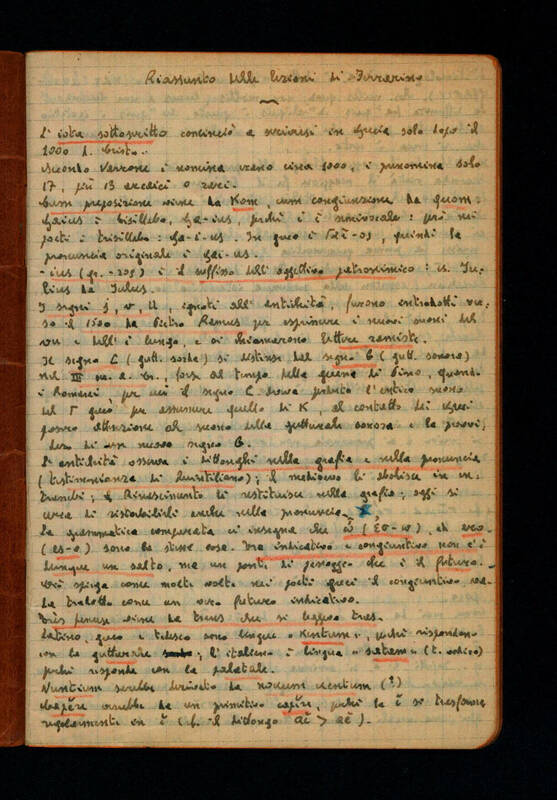 Riassunto delle lezioni di Ferrarino
L'iota sottoscritto cominciò a scriversi in Grecia solo dopo il
1000 d. Cristo.
Secondo Varrone i nomina erano circa 1000, i praenomina solo
17, più 13 arcaici o rari.
Cum preposizione viene da Kom, cum congiunzione da quom.
Gaius è bisillabo, Ga-ius, perché i è univocale: però nei
poeti è trisillabo: Ga-i-us. In greco è Γαϊ-ος, quindi la
pronuncia originale è Gai-us.
-ius (gr. -ιος) è il suffisso dell'aggettivo patronimico: es. Iu-
lius da Iulus.
I segni j, v, U, ignoti all'antichità, furono introdotti ver-
so il 1500 da Pietro Ramus per esprimere i nuovi suoni del
vu e dell'i lungo, e si chiamarono lettere ramiste.
Il segno C (gutt. sorda) si distinse dal segno G (gutt. sonora)
nel III sec. a. Cr., forse al tempo della guerra di Pirro, quando
i Romani per cui il segno C aveva perduto l'antico suono
del Γ greco per assumere quello di K, al contatto dei Greci
posero attenzione al suono della gutturale sonora e la provvi-
dero di un nuovo segno G.
L'antichità osserva i dittonghi nella grafia e nella pronuncia
(testimonianza di Quintiliano); il medioevo li abolisce in en-
trambi; il Rinascimento li restituisce nella grafia; oggi si
cerca di ristabilirli anche nella pronuncia.
La grammatica comparata ci insegna che ὦ (ἐσ-ω), ed ero
(es-o) sono la stessa cosa. Tra indicativo e congiuntivo non c'è
dunque un salto, ma un ponte di passaggio che è il futuro.
Ciò spiega come molte volte nei poeti greci il congiuntivo va-
da tradotto come un vero futuro indicativo.
Très pensur viene da trens che si legge tres.
Latino, greco e tedesco sono lingue "Kentum", perché rispondono
con la gutturale; l'italiano è lingua "satem" (t. indico)
perché risponde con la palatale.
Nuntium sarebbe derivato da novum ventium (?)
 avrebbe da un primitivo capĕre, perché la ĕ si trasforma
regolarmente in ĭ (cf. il dittongo aĭ > aĕ).